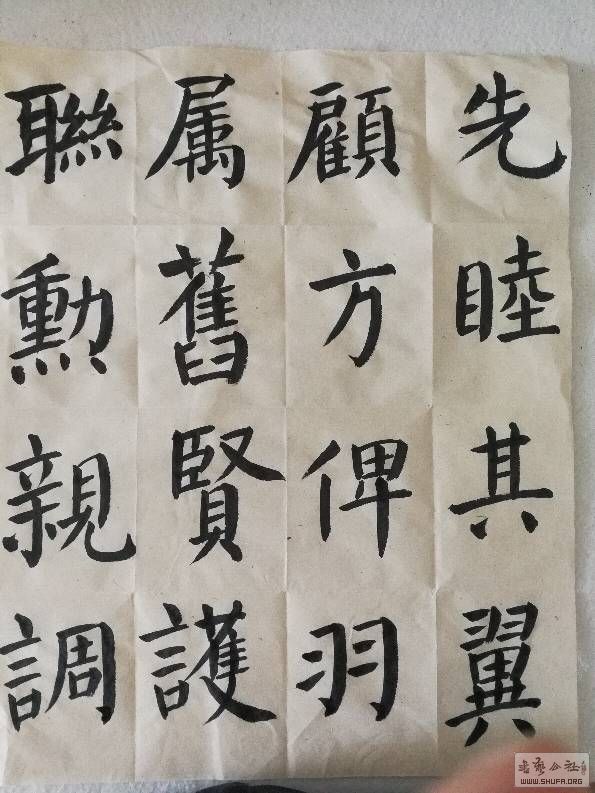 先睦其翼
顧方俾羽
属舊賢護
聯勳親調
书艺公社
WWW.SHUFA.ORG